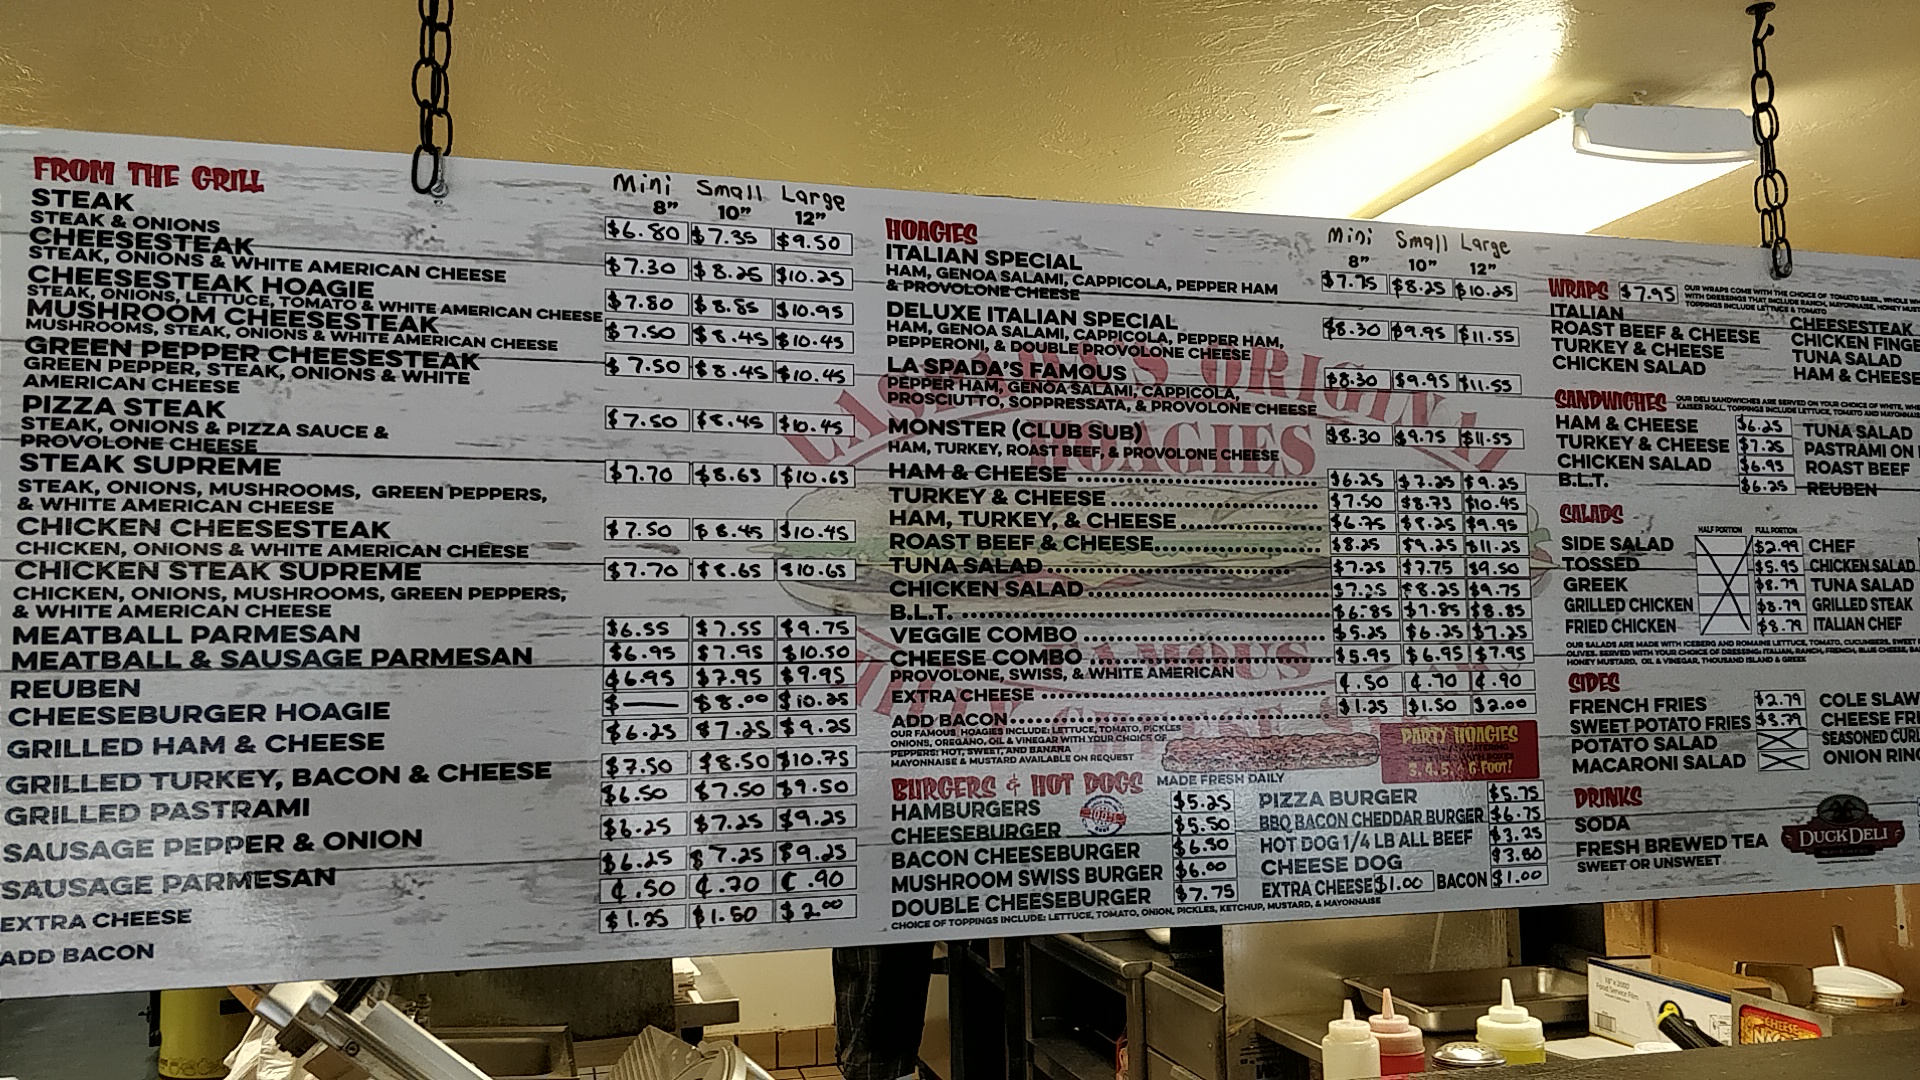 FROM THE GRILL
Mini Small Large
8" 10" 12"
STEAK
STEAK & ONIONS
$6.80 $7.35 $9.50
CHEESESTEAK
STEAK, ONIONS & WHITE AMERICAN CHEESE
$7.30 $8.25 $10.25
CHEESESTEAK HOAGIE
STEAK, ONIONS, LETTUCE, TOMATO & WHITE AMERICAN CHEESE
$7.80 $8.85 $10.95
MUSHROOM CHEESESTEAK
MUSHROOMS, STEAK, ONIONS & WHITE AMERICAN CHEESE
$7.50 $8.45 $10.45
GREEN PEPPER CHEESESTEAK
GREEN PEPPER, STEAK, ONIONS & WHITE
AMERICAN CHEESE
$7.50 $8.45 $10.45
PIZZA STEAK
STEAK, ONIONS & PIZZA SAUCE &
PROVOLONE CHEESE
$7.50 $8.45 $10.45
STEAK SUPREME
STEAK, ONIONS, MUSHROOMS, GREEN PEPPERS,
& WHITE AMERICAN CHEESE
$7.70 $8.65 $10.65
CHICKEN CHEESESTEAK
CHICKEN, ONIONS & WHITE AMERICAN CHEESE
$7.50 $8.45 $10.45
CHICKEN STEAK SUPREME
CHICKEN, ONIONS, MUSHROOMS, GREEN PEPPERS,
& WHITE AMERICAN CHEESE
$7.70 $8.65 $10.65
MEATBALL PARMESAN $6.55 $7.55 $9.75
MEATBALL & SAUSAGE PARMESAN $6.95 $7.95 $10.50
REUBEN $6.95 $7.95 $9.95
CHEESEBURGER HOAGIE $— $8.00 $10.25
GRILLED HAM & CHEESE $6.25 $7.25 $9.25
GRILLED TURKEY, BACON & CHEESE $7.50 $8.50 $10.75
GRILLED PASTRAMI $6.50 $7.50 $9.50
SAUSAGE PEPPER & ONION $6.25 $7.25 $9.25
SAUSAGE PARMESAN $6.25 $7.25 $9.25
EXTRA CHEESE ¢.50 ¢.70 ¢.90
ADD BACON $1.25 $1.50 $2.00
HOAGIES
Mini Small Large
8" 10" 12"
ITALIAN SPECIAL
HAM, GENOA SALAMI, CAPPICOLA, PEPPER HAM
& PROVOLONE CHEESE
$7.75 $8.25 $10.25
DELUXE ITALIAN SPECIAL
HAM, GENOA SALAMI, CAPPICOLA, PEPPER HAM,
PEPPERONI, & DOUBLE PROVOLONE CHEESE
$8.30 $9.95 $11.55
LA SPADA'S FAMOUS
PEPPER HAM, GENOA SALAMI, CAPPICOLA,
PROSCIUTTO, SOPPRESSATA, & PROVOLONE CHEESE
$8.30 $9.95 $11.55
MONSTER (CLUB SUB)
HAM, TURKEY, ROAST BEEF, & PROVOLONE CHEESE
$8.30 $9.75 $11.55
HAM & CHEESE $6.25 $7.25 $9.25
TURKEY & CHEESE $7.50 $8.75 $10.45
HAM, TURKEY, & CHEESE $6.75 $8.25 $9.95
ROAST BEEF & CHEESE $8.25 $9.25 $11.25
TUNA SALAD $7.25 $7.75 $9.50
CHICKEN SALAD $7.25 $8.25 $9.75
B.L.T. $6.85 $7.85 $8.85
VEGGIE COMBO $5.25 $6.25 $7.25
CHEESE COMBO $5.95 $6.95 $7.95
PROVOLONE, SWISS, & WHITE AMERICAN
EXTRA CHEESE ¢.50 ¢.70 ¢.90
ADD BACON $1.25 $1.50 $2.00
OUR FAMOUS HOAGIES INCLUDE: LETTUCE, TOMATO, PICKLES
ONIONS, OREGANO, OIL & VINEGAR WITH YOUR CHOICE OF
PEPPERS: HOT, SWEET, AND BANANA
MAYONNAISE & MUSTARD AVAILABLE ON REQUEST
MADE FRESH DAILY
PARTY HOAGIES
3, 4, 5, & 6 FOOT!
ORIGINAL
HOAGIES
FAMOUS
BURGERS & HOT DOGS
HAMBURGERS $5.25
CHEESEBURGER $5.50
BACON CHEESEBURGER $6.50
MUSHROOM SWISS BURGER $6.00
DOUBLE CHEESEBURGER $7.75
PIZZA BURGER $5.75
BBQ BACON CHEDDAR BURGER $6.75
HOT DOG 1/4 LB ALL BEEF $3.25
CHEESE DOG $3.80
EXTRA CHEESE $1.00 BACON $1.00
CHOICE OF TOPPINGS INCLUDE: LETTUCE, TOMATO, ONION, PICKLES, KETCHUP, MUSTARD, & MAYONNAISE
WRAPS $7.95
OUR WRAPS COME WITH THE CHOICE OF TOMATO BASIL, WHOLE
WITH DRESSINGS THAT INCLUDE RANCH, MAYONNAISE, HONEY
TOPPINGS INCLUDE LETTUCE & TOMATO
ITALIAN
ROAST BEEF & CHEESE
TURKEY & CHEESE
CHICKEN SALAD
CHEESESTEAK
CHICKEN FINGE
TUNA SALAD
HAM & CHEESE
SANDWICHES
OUR DELI SANDWICHES ARE SERVED ON YOUR CHOICE OF WHITE,
KAISER ROLL. TOPPINGS INCLUDE LETTUCE, TOMATO AND
HAM & CHEESE $6.25
TURKEY & CHEESE $7.25
CHICKEN SALAD $6.95
B.L.T. $6.25
TUNA SALAD
PASTRAMI ON
ROAST BEEF
REUBEN
SALADS
HALF PORTION FULL PORTION
SIDE SALAD $2.99
TOSSED $5.95
GREEK $8.79
GRILLED CHICKEN $8.79
FRIED CHICKEN $8.79
CHEF
CHICKEN SALAD
TUNA SALAD
GRILLED STEAK
ITALIAN CHEF
OUR SALADS ARE MADE WITH ICEBERG AND ROMAINE LETTUCE, TOMATO, CUCUMBERS, SWEET
OLIVES. SERVED WITH YOUR CHOICE OF DRESSING: ITALIAN, RANCH, FRENCH, BLUE CHEESE,
HONEY MUSTARD, OIL & VINEGAR, THOUSAND ISLAND & GREEK
SIDES
FRENCH FRIES $2.79
SWEET POTATO FRIES $3.79
POTATO SALAD
MACARONI SALAD
COLE SLAW
CHEESE FRI
SEASONED CURL
ONION RING
DRINKS
SODA
FRESH BREWED TEA
SWEET OR UNSWEET
DUCK DELI
Food Service Film
CHEESE